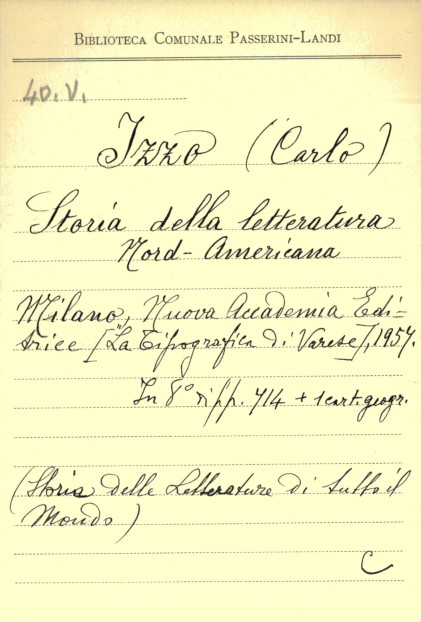 BIBLIOTECA COMUNALE PASSERINI-LANDI
40.V.
Izzo (Carlo)
Storia della letteratura
Nord-Americana
Milano, Nuova Accademia Edi=
trice [La Tipografica di Varese], 1957.
In 8° di pp. 714 + 1 cart. geogr.
(Storia delle Letterature di tutto il
Mondo)
C